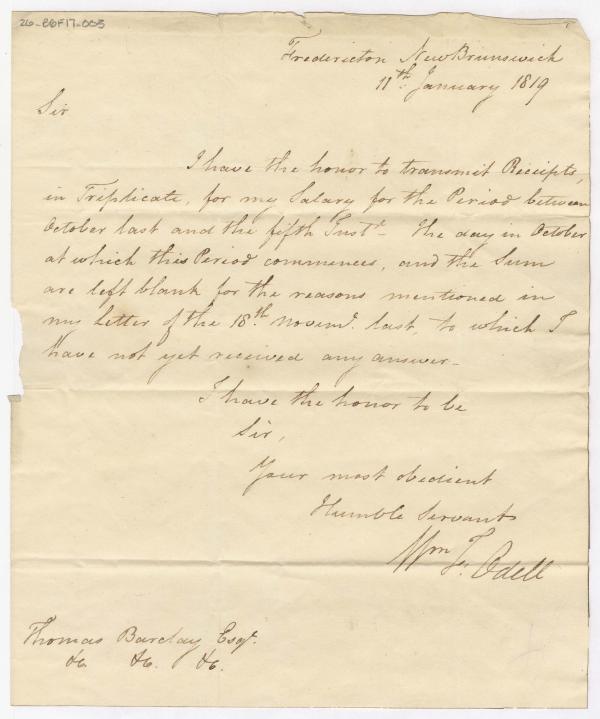 26-B6F17-003
Fredericton New Brunswick
11th. January 1819
Sir
I have the honor to transmit Receipts,
in Triplicate, for my Salary for the Period between
October last and the fifth Inst. - The day in October
at which this Period commences, and the Sum
are left blank for the reasons mentioned in
my Letter of the 18th. Novemr. last, to which I
have not yet received any answer -
I have the honor to be
Sir,
Your most obedient
Humble Servant
Wm F. Odell
Thomas Barclay Esqr.
&c. &c. &c.